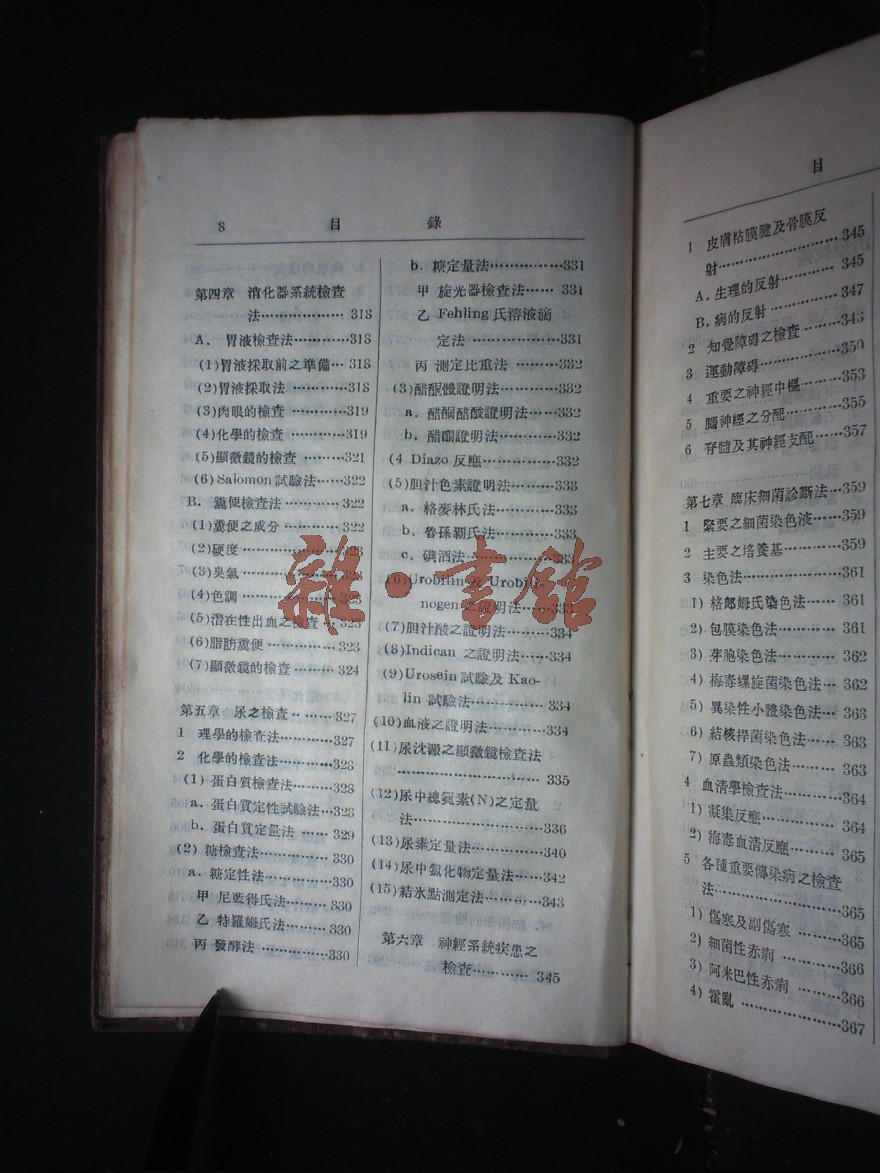 8 目 錄
第四章 消化器系統檢查
法……………… 318
A. 胃液檢查法…………318
(1)胃液採取前之準備… 318
(2)胃液採取法…………318
(3)肉眼的檢查 …………319
(4)化學的檢查 …………319
(5)顯微鏡的檢查 ………321
(6)Salomon試驗法……322
B. 糞便檢查法 …………322
(1)糞便之成分 ………… 322
(2)硬度 ………………… 323
(3)臭氣 ………………… 323
(4)色調 ………………… 323
(5)潛在性出血之檢查 … 323
(6)脂肪糞便 ……………
(7)顯微鏡的檢查 ……… 324
第五章 尿之檢查……… 327
1 理學的檢查法…………327
2 化學的檢查法…………328
(1) 蛋白質檢查法………328
a. 蛋白質定性試驗法…328
b. 蛋白質定量法 …… 329
(2) 糖檢查法……………330
a. 糖定性法……………330
甲 尼藍得氏法……… 330
乙 特羅姆氏法……… 330
丙 發酵法 ……………330
b. 糖定量法………………331
甲 旋光器檢查法…… 331
乙 Fehling 氏溶液滴
定法 …………………331
丙 測定比重法 ………332
(3)醋酮體證明法…………332
a. 醋酮醋酸證明法……332
b. 醋酮證明法…………332
(4 Diazo 反應……………332
(5)胆汁色素證明法………333
a. 格麥林氏法…………333
b. 魯孫氏法…………333
c. 碘酒法………………333
(6)Urobilin 及 Urobili-
nogen 之證明法……333
(7)胆汁酸之證明法………334
(8)Indican 之證明法……334
(9)Urosein 試驗及 Kao-
lin 試驗法……………334
(10)血液之證明法…………334
(11)尿沈澱之顯微鏡檢查法
………………………… 335
(12)尿中總氮素(N)之定量
法……………………336
(13)尿素定量法……………340
(14)尿中氯化物定量法……342
(15)結氷點測定法…………343
第六章 神經系統疾患之
檢查………… 345
目
1 皮膚粘膜腱及骨膜反
射……………………345
A. 生理的反射………… 345
B. 病的反射 ……………347
2 知覺障碍之檢查………348
3 運動障碍………………350
4 重要之神經中樞………353
5 腦神經之分配…………355
6 脊髓及其神經支配……357
第七章 臨床細菌診斷法…359
1 緊要之細菌染色液……359
2 主要之培養基…………359
3 染色法…………………361
1) 格郎姆氏染色法…… 361
2) 包膜染色法…………361
3) 芽胞染色法………… 362
4) 梅毒螺旋菌染色法… 362
5) 異染性小體染色法… 363
6) 結核桿菌染色法…… 363
7) 原蟲類染色法……… 363
4 血清學檢查法…………364
1) 凝集反應…………… 364
2) 梅毒血清反應……… 365
5 各種重要傳染病之檢查
法……………………365
1) 傷寒及副傷寒 ………365
2) 細菌性赤痢 …………366
3) 阿米巴性赤痢 ………366
4) 霍亂 …………………367
雜·書館